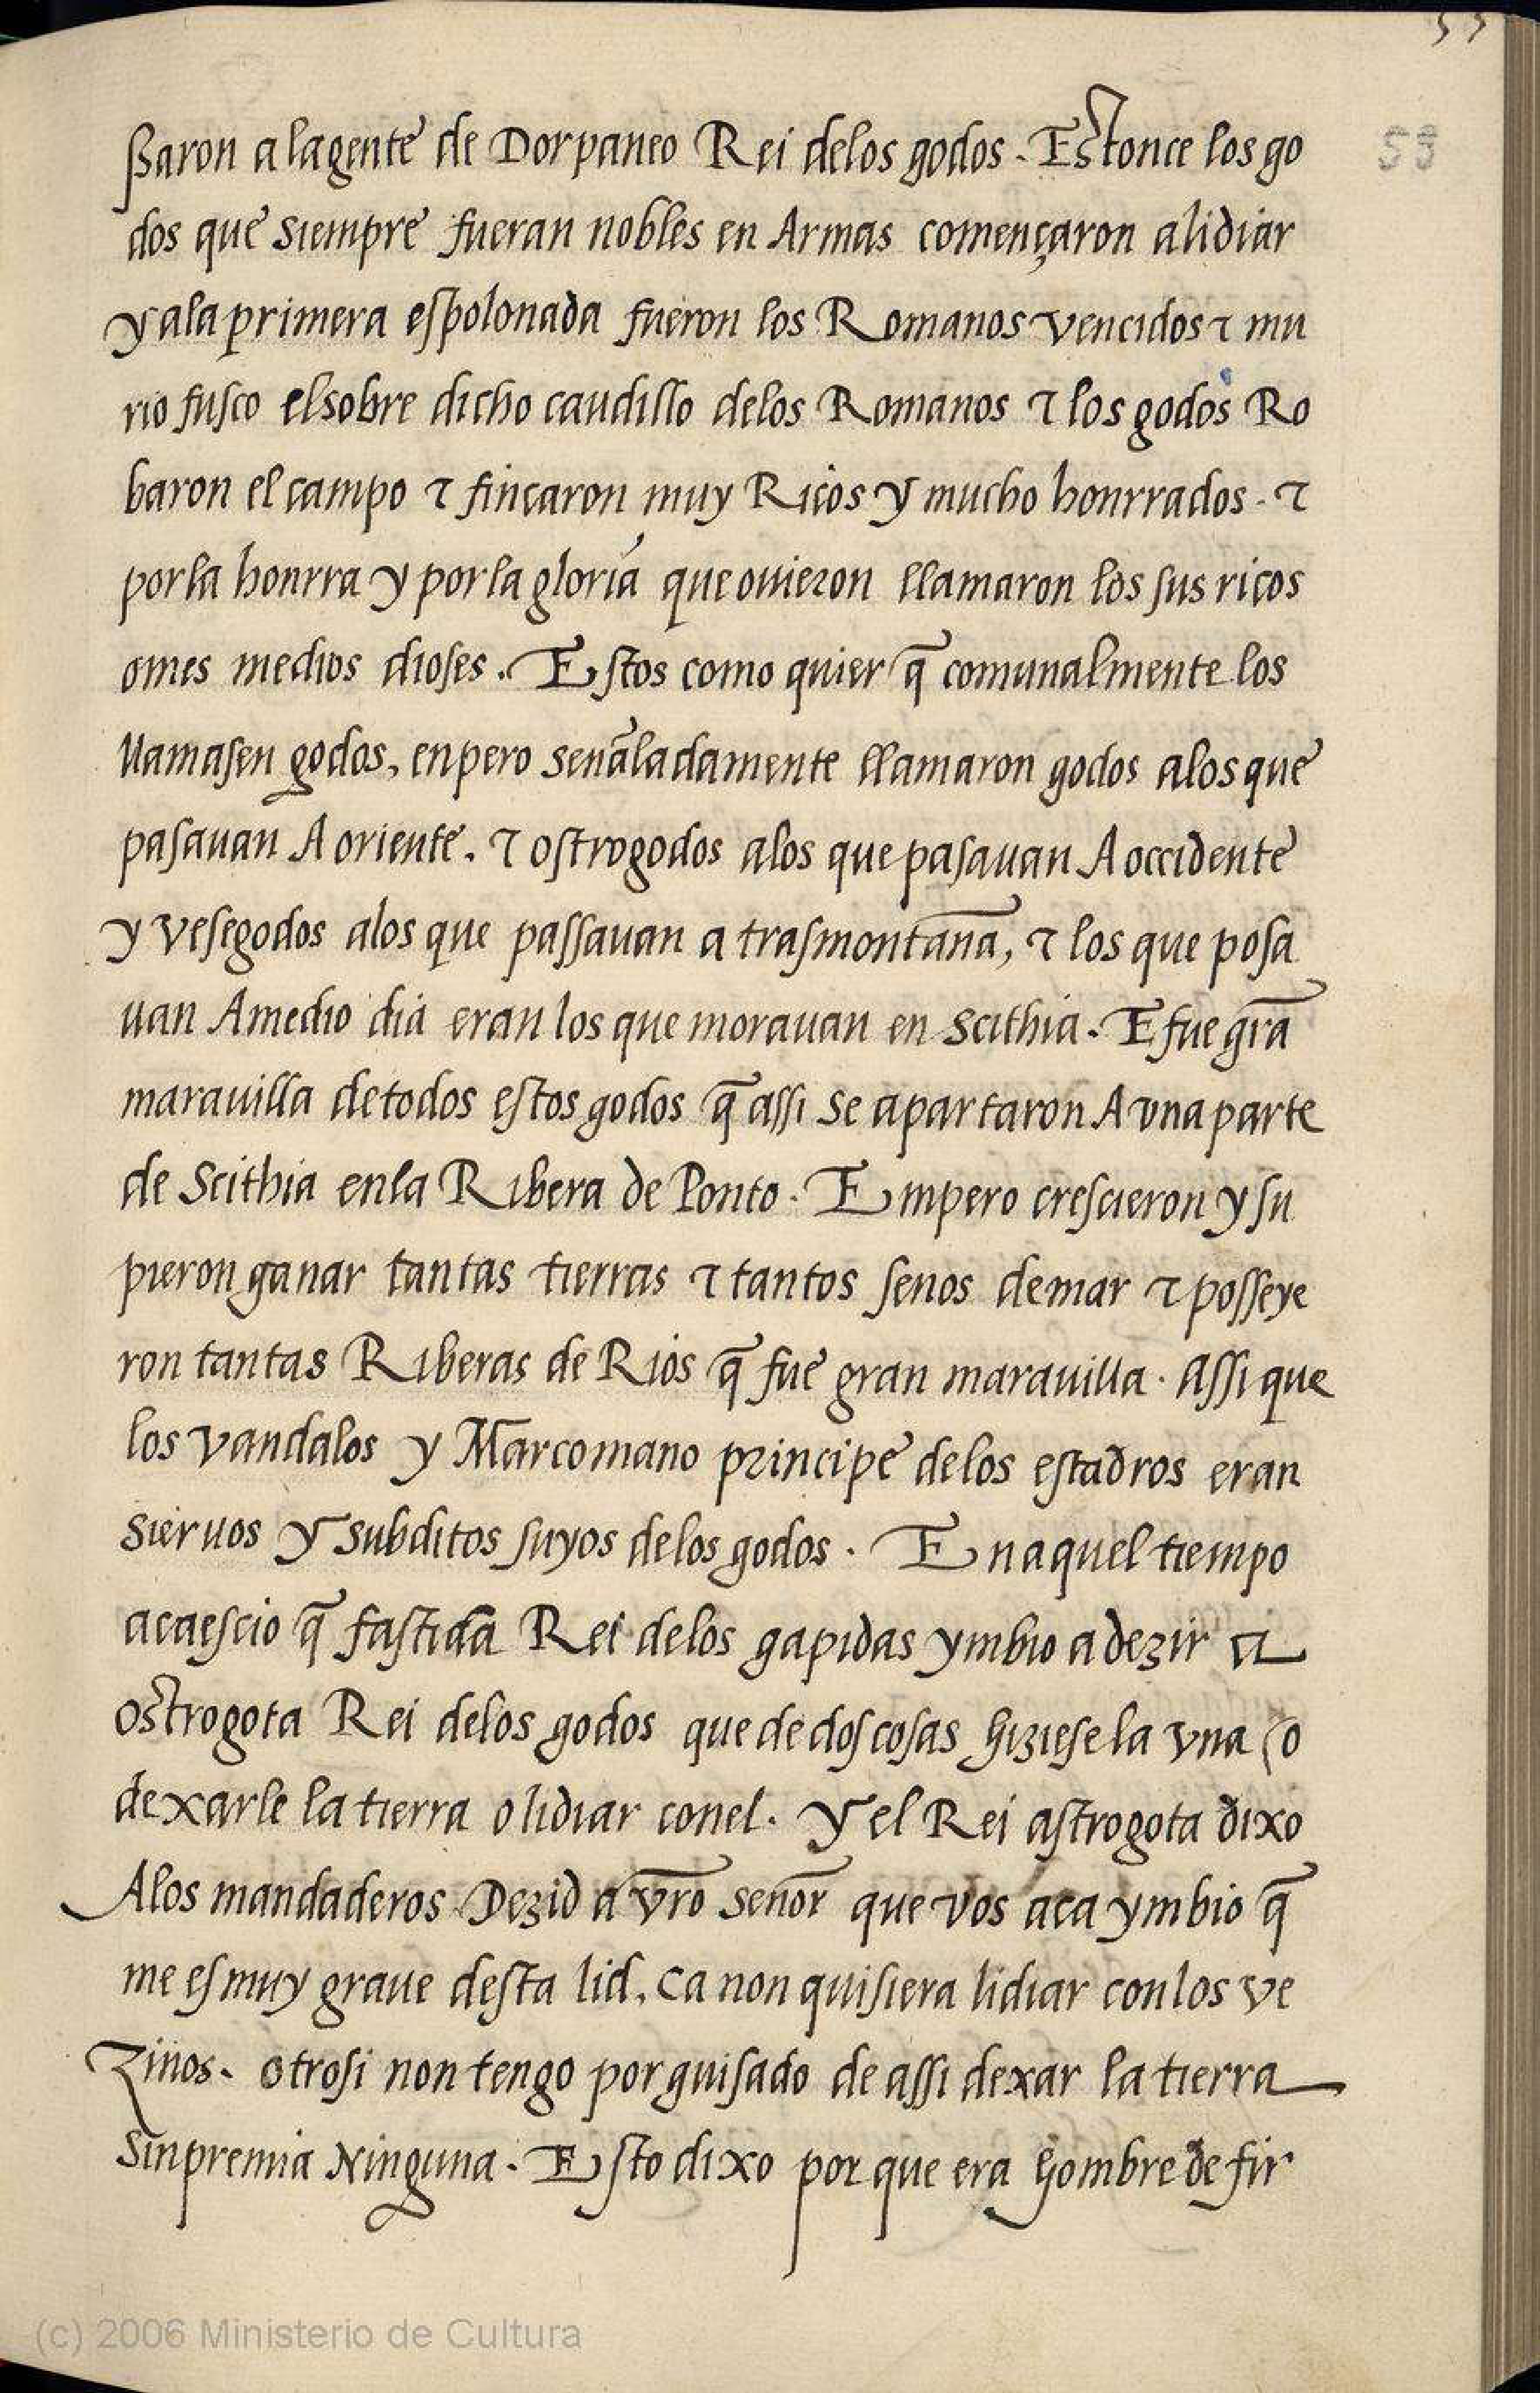 53
ssaron a la gente de Dorpaneo Rei delos godos. Estonce los go
dos que siempre fueran nobles en Armas començaron a lidiar
y ala primera espolonada fueron los Romanos vencidos ⁊ mu
rio fusco el sobre dicho caudillo delos Romanos ⁊ los godos Ro
baron el campo ⁊ fincaron muy Ricos y mucho honrrados. ⁊
por la honrra y por la gloria que ouieron llamaron los sus ricos
omes medios dioses. Estos como quier q̄ comunalmente los
llamasen godos, enpero senãladamente llamaron godos alos que
pasauan A oriente. ⁊ ostrogodos alos que pasauan A occidente
y vesegodos alos que passauan a trasmontana, ⁊ los que posa
uan A medio dia eran los que morauan en Scithia. E fue grã
marauilla de todos estos godos q̄ assi se apartaron A vna parte
de Scithia enla Ribera de Ponto. Empero crescieron y su
pieron ganar tantas tierras ⁊ tantos senos de mar ⁊ posseye
ron tantas Riberas de Rios q̄ fue gran marauilla. Assi que
los vandalos y Marcomano principe delos estadros eran
sieruos y subditos suyos delos godos. En aquel tiempo
acaescio q̄ fastida Rei delos gapidas ymbio a dezir a
ostrogota Rei delos godos que de dos cosas hiziese la vna (o
dexarle la tierra o lidiar conel. Y el Rei astrogota dixo
Alos mandaderos Dezid a vr̃o señor que vos aca ymbio q̄
me es muy graue desta lid, ca non quisiera lidiar con los ve
zinos. otrosi non tengo por guisado de assi dexar la tierra
sin premia Ninguna. Esto dixo por que era hombre de fir
(c) 2006 Ministerio de Cultura